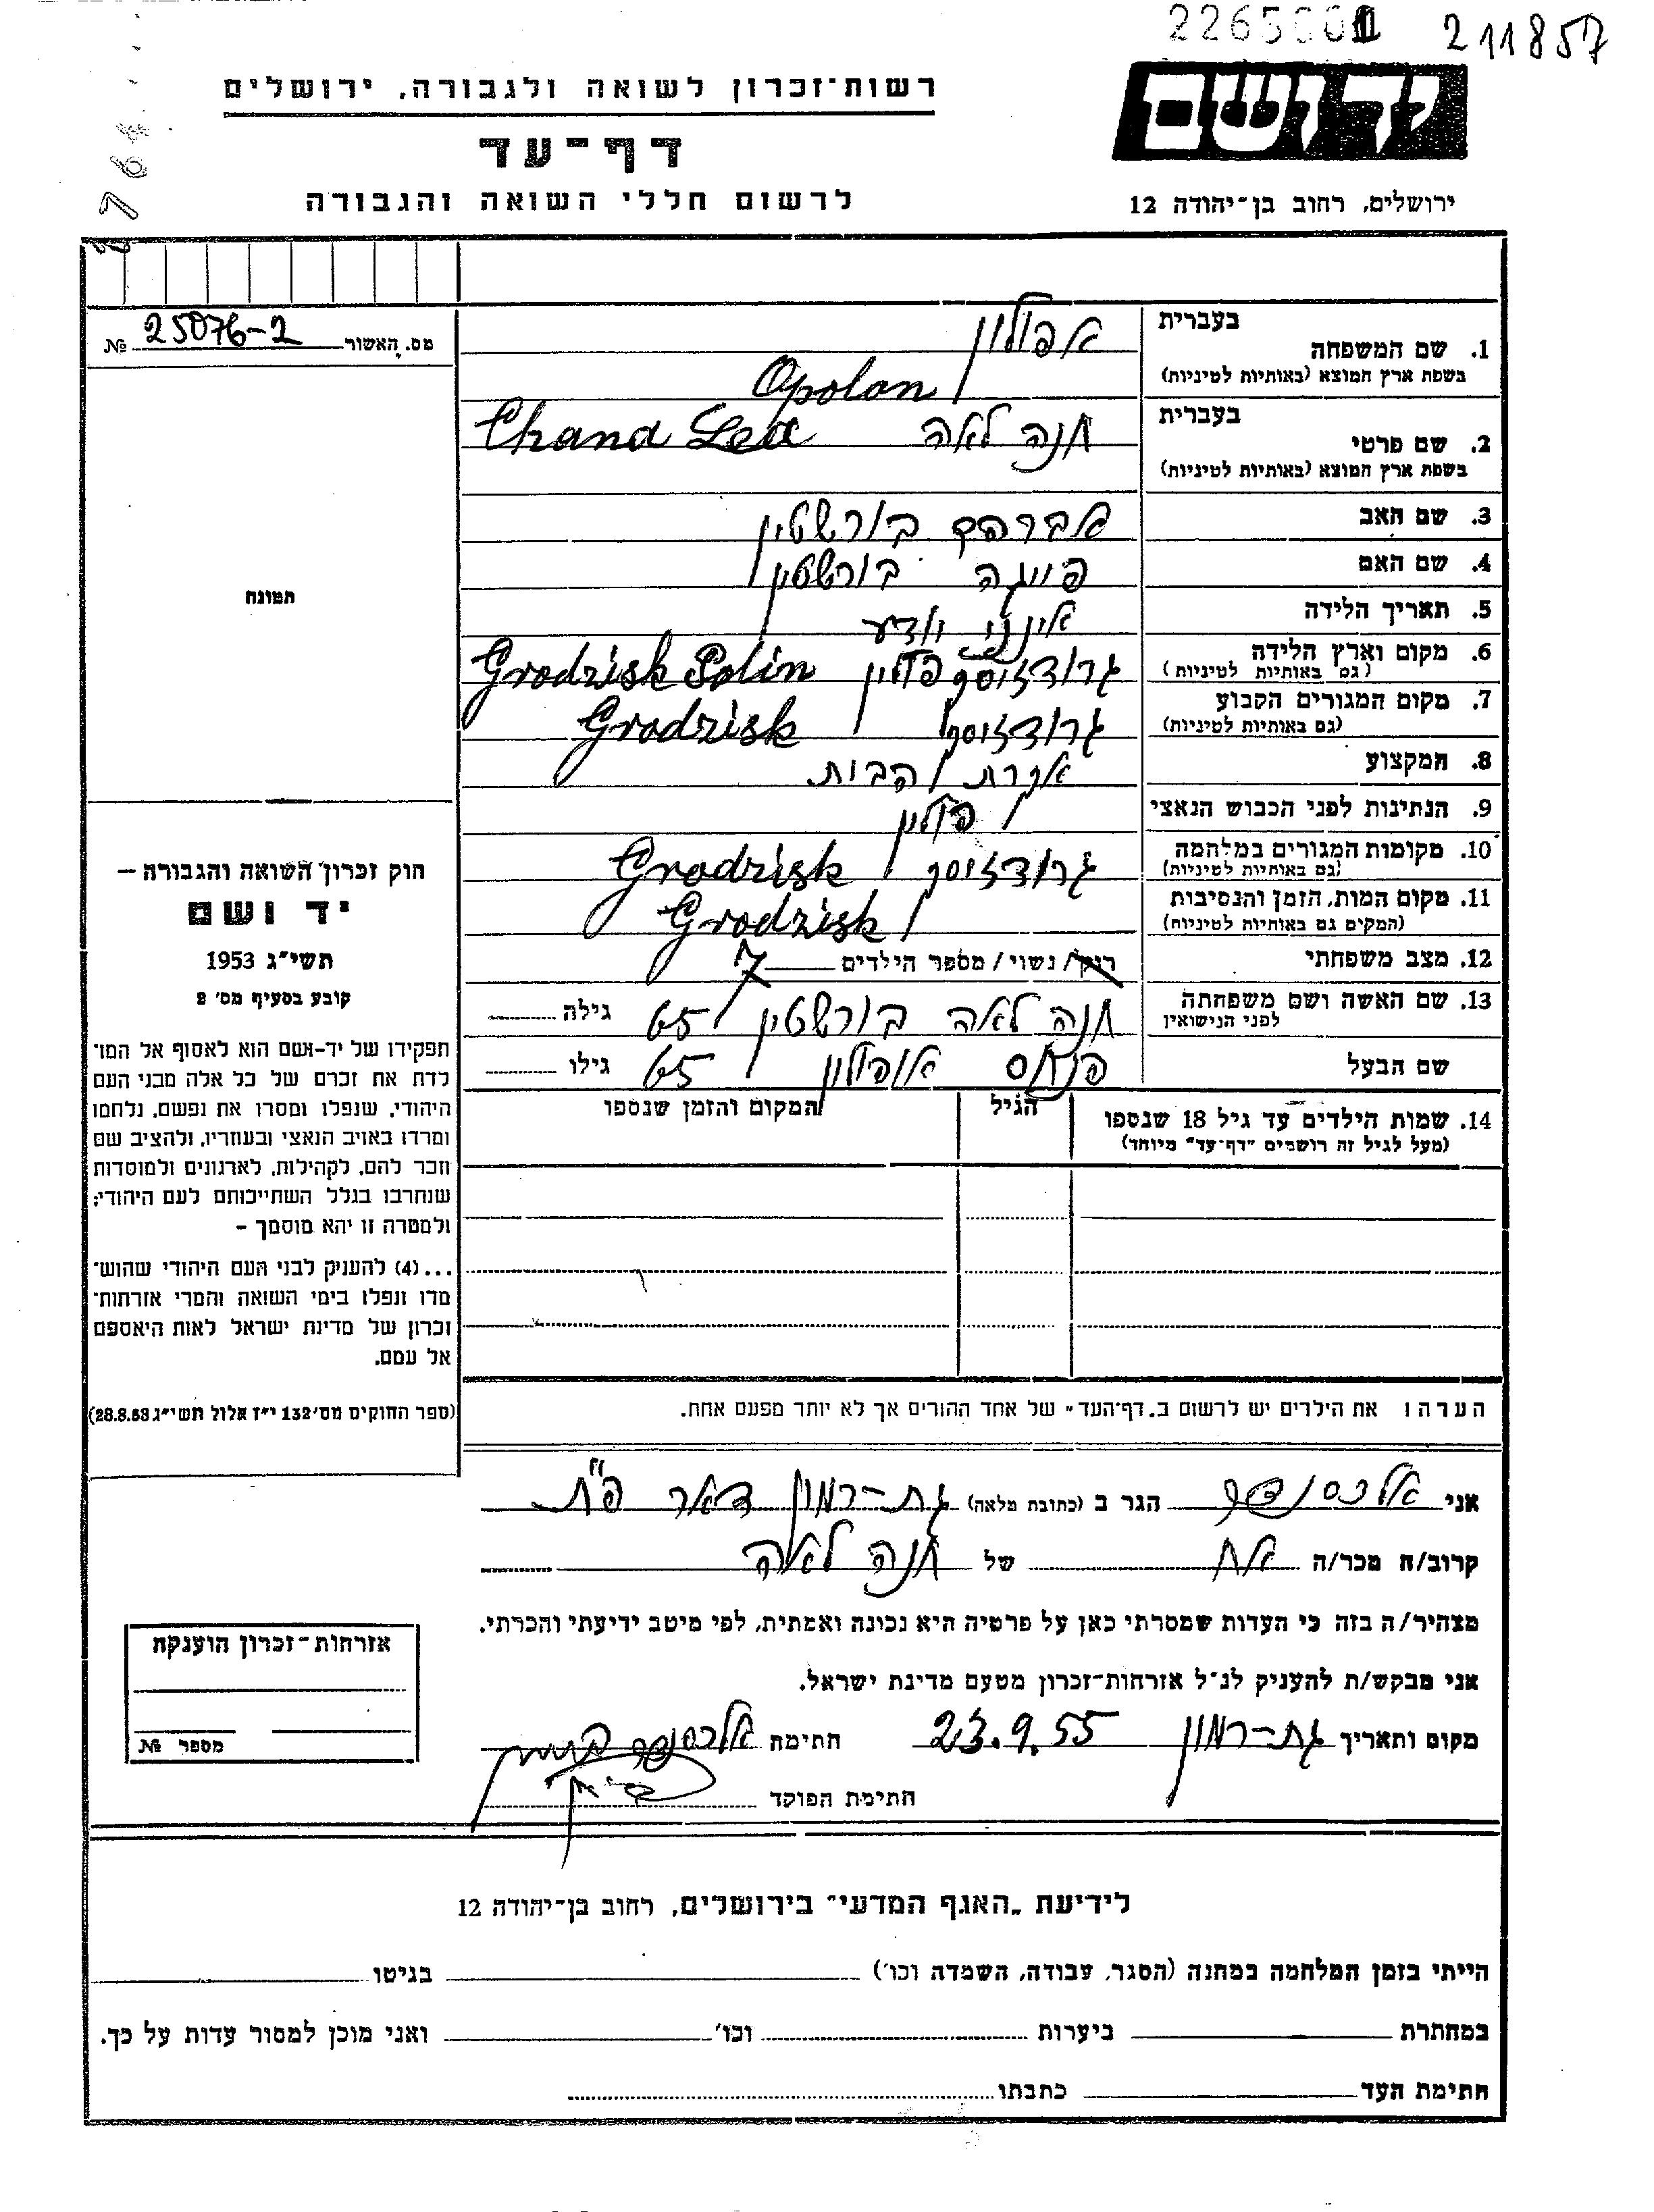 2265001 211857
ידושם
רשות־זכרון לשואה ולגבורה, ירושלים
דף־עד
לרשום חללי השואה והגבורה
ירושלים, רחוב בן־יהודה 12
764
מס. האשור 25076-2 №
תמונה
בעברית אפולון
1. שם המשפחה
בשפת ארץ המוצא (באותיות לטיניות) Opolon
בעברית חנה לאה Chana Lea
2. שם פרטי
בשפת ארץ המוצא (באותיות לטיניות)
3. שם האב אברהם בורשטין
4. שם האם פייגה בורשטין
5. תאריך הלידה אינני יודע
6. מקום וארץ הלידה גרודזיסק פולין Grodzisk Polin
(גם באותיות לטיניות)
7. מקום המגורים הקבוע גרודזיסק Grodzisk
(גם באותיות לטיניות)
8. המקצוע עקרת הבית.
9. הנתינות לפני הכבוש הנאצי פולין
10. מקומות המגורים במלחמה גרודזיסק Grodzisk
(גם באותיות לטיניות)
11. מקום המות, הזמן והנסיבות Grodzisk
(המקום גם באותיות לטיניות)
12. מצב משפחתי רווק/ נשוי / מספר הילדים 7
13. שם האשה ושם משפחתה חנה לאה בורשטין 65 גילה
לפני הנישואין
שם הבעל פנחס אופולון 65 גילו
14. שמות הילדים עד גיל 18 שנספו הגיל המקום והזמן שנספו
(מעל לגיל זה רושמים "דף־עד" מיוחד)
חוק זכרון השואה והגבורה —
יד ושם
תשי"ג 1953
קובע בסעיף מס' 2
תפקידו של יד-ושם הוא לאסוף אל המו־
לדת את זכרם של כל אלה מבני העם
היהודי, שנפלו ומסרו את נפשם, נלחמו
ומרדו באויב הנאצי ובעוזריו, ולהציב שם
וזכר להם, לקהילות, לארגונים ולמוסדות
שנחרבו בגלל השתייכותם לעם היהודי;
ולמטרה זו יהא מוסמך —
...(4) להעניק לבני העם היהודי שהוש־
מדו ונפלו בימי השואה והמרי אזרחות־
זכרון של מדינת ישראל לאות היאספם
אל עמם.
(ספר החוקים מס' 132 י"ז אלול תשי"ג 28.8.53)
הערה: את הילדים יש לרשום ב„דף־העד" של אחד ההורים אך לא יותר מפעם אחת.
אני אלכסנדר הגר ב (כתובת מלאה) גת-רמון דאר פ"ת
קרוב/ה מכר/ה אח של חנה לאה
מצהיר/ה בזה כי העדות שמסרתי כאן על פרטיה היא נכונה ואמתית, לפי מיטב ידיעתי והכרתי.
אני מבקש/ת להעניק לנ"ל אזרחות־זכרון מטעם מדינת ישראל.
מקום ותאריך גת-רמון 23.9.55 חתימה אלכסנדר
חתימת הפוקד
אזרחות־זכרון הוענקה
מספר №
לידיעת „האגף המדעי" בירושלים, רחוב בן־יהודה 12
הייתי בזמן המלחמה במחנה (הסגר, עבודה, השמדה וכו') בגיטו
במחתרת ביערות וכו' ואני מוכן למסור עדות על כך.
חתימת העד כתבתו